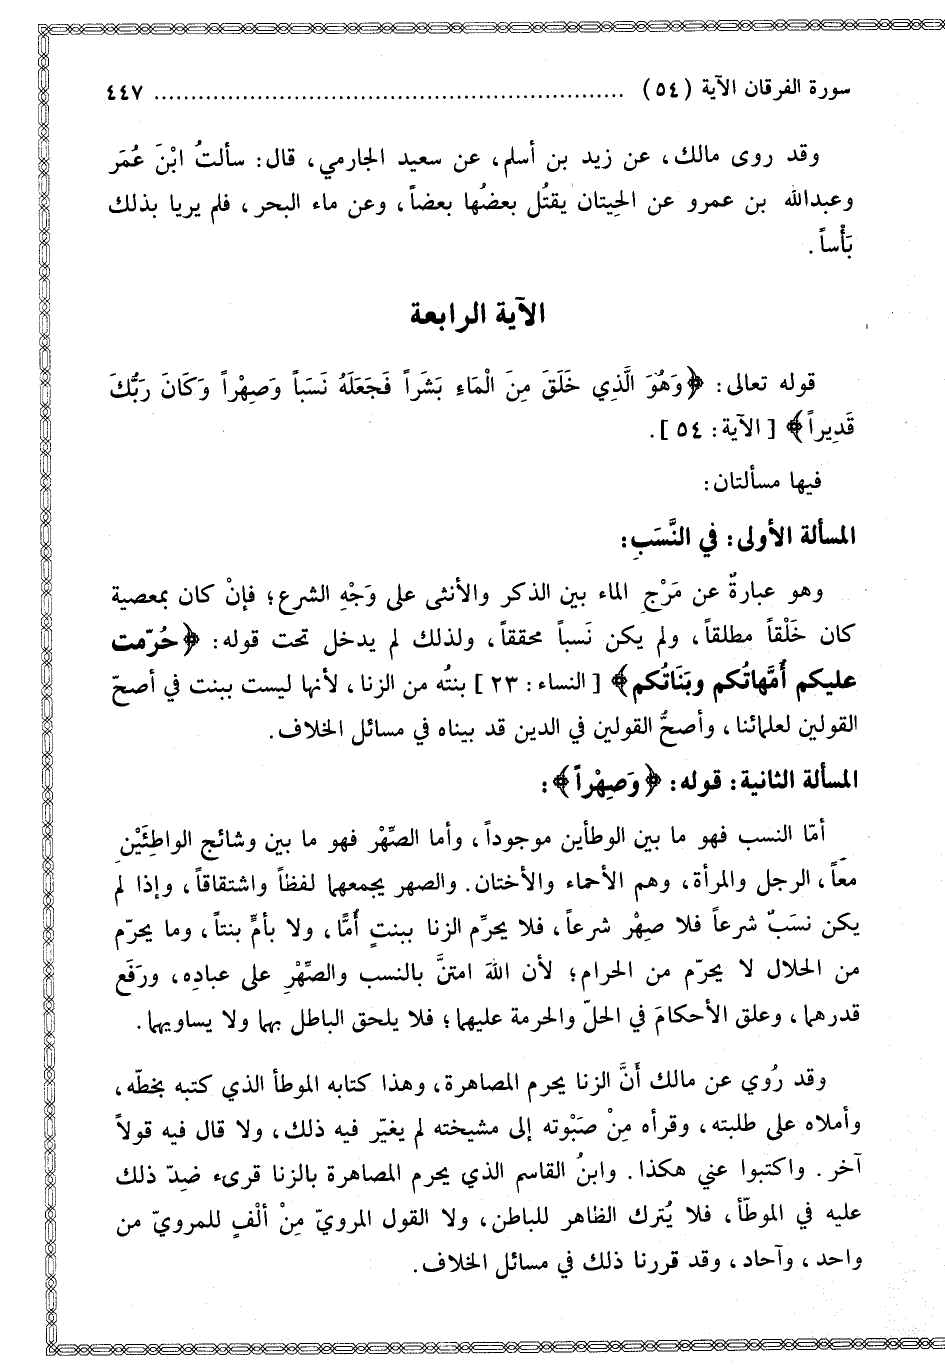 سورة الفرقان الآية (٥٤) ............................................................ ٤٤٧
وقد روى مالك، عن زيد بن أسلم، عن سعيد الجارمي، قال: سألتُ ابْنَ عُمَر
وعبدالله بن عمرو عن الحِيتان يقتُل بعضُها بعضاً، وعن ماء البحر، فلم يريا بذلك
بَأْساً.
الآية الرابعة
قوله تعالى: ﴿وَهُوَ الَّذِي خَلَقَ مِنَ الْمَاءِ بَشَراً فَجَعَلَهُ نَسَباً وَصِهْراً وَكَانَ رَبُّكَ
قَدِيراً﴾ [الآية: ٥٤].
فيها مسألتان:
المسألة الأولى: في النَّسَبِ:
وهو عبارةٌ عن مَرْجِ الماء بين الذكر والأنثى على وَجْهِ الشرع؛ فإنْ كان بمعصية
كان خَلْقاً مطلقاً، ولم يكن نَسباً محققاً، ولذلك لم يدخل تحت قوله: ﴿حُرّمت
عليكم أُمَّهاتُكم وبَنَاتُكم﴾ [النساء: ٢٣] بنتُه من الزنا، لأنها ليست ببنت في أصحّ
القولين لعلمائنا، وأصحُّ القولين في الدين قد بيناه في مسائل الخلاف.
المسألة الثانية: قوله: ﴿وَصِهْراً﴾:
أمّا النسب فهو ما بين الوطأين موجوداً، وأما الصِّهْر فهو ما بين وشائج الواطِئَيْنِ
معاً، الرجل والمرأة، وهم الأحماء والأختان. والصهر يجمعهما لفظاً واشتقاقاً، وإذا لم
يكن نسَبٌ شرعاً فلا صِهْر شرعاً، فلا يحرِّم الزنا ببنتٍ أُمًّا، ولا بأمٍّ بنتاً، وما يحرّم
من الحلال لا يحرّم من الحرام؛ لأن اللهَ امتنَّ بالنسب والصِّهْرِ على عباده، ورَفَع
قدرهما، وعلق الأحكامَ في الحلّ والحرمة عليهما؛ فلا يلحق الباطل بهما ولا يساويهما.
وقد رُوي عن مالك أَنَّ الزنا يحرم المصاهرة، وهذا كتابه الموطأ الذي كتبه بخطّه،
وأملاه على طلبته، وقرأه مِنْ صَبْوته إلى مشيخته لم يغيّر فيه ذلك، ولا قال فيه قولاً
آخر. واكتبوا عني هكذا. وابنُ القاسم الذي يحرم المصاهرة بالزنا قرىء ضِدّ ذلك
عليه في الموطّأ، فلا يُترك الظاهر للباطن، ولا القول المرويّ مِنْ ألْفٍ للمرويّ من
واحد، وآحاد، وقد قررنا ذلك في مسائل الخلاف.